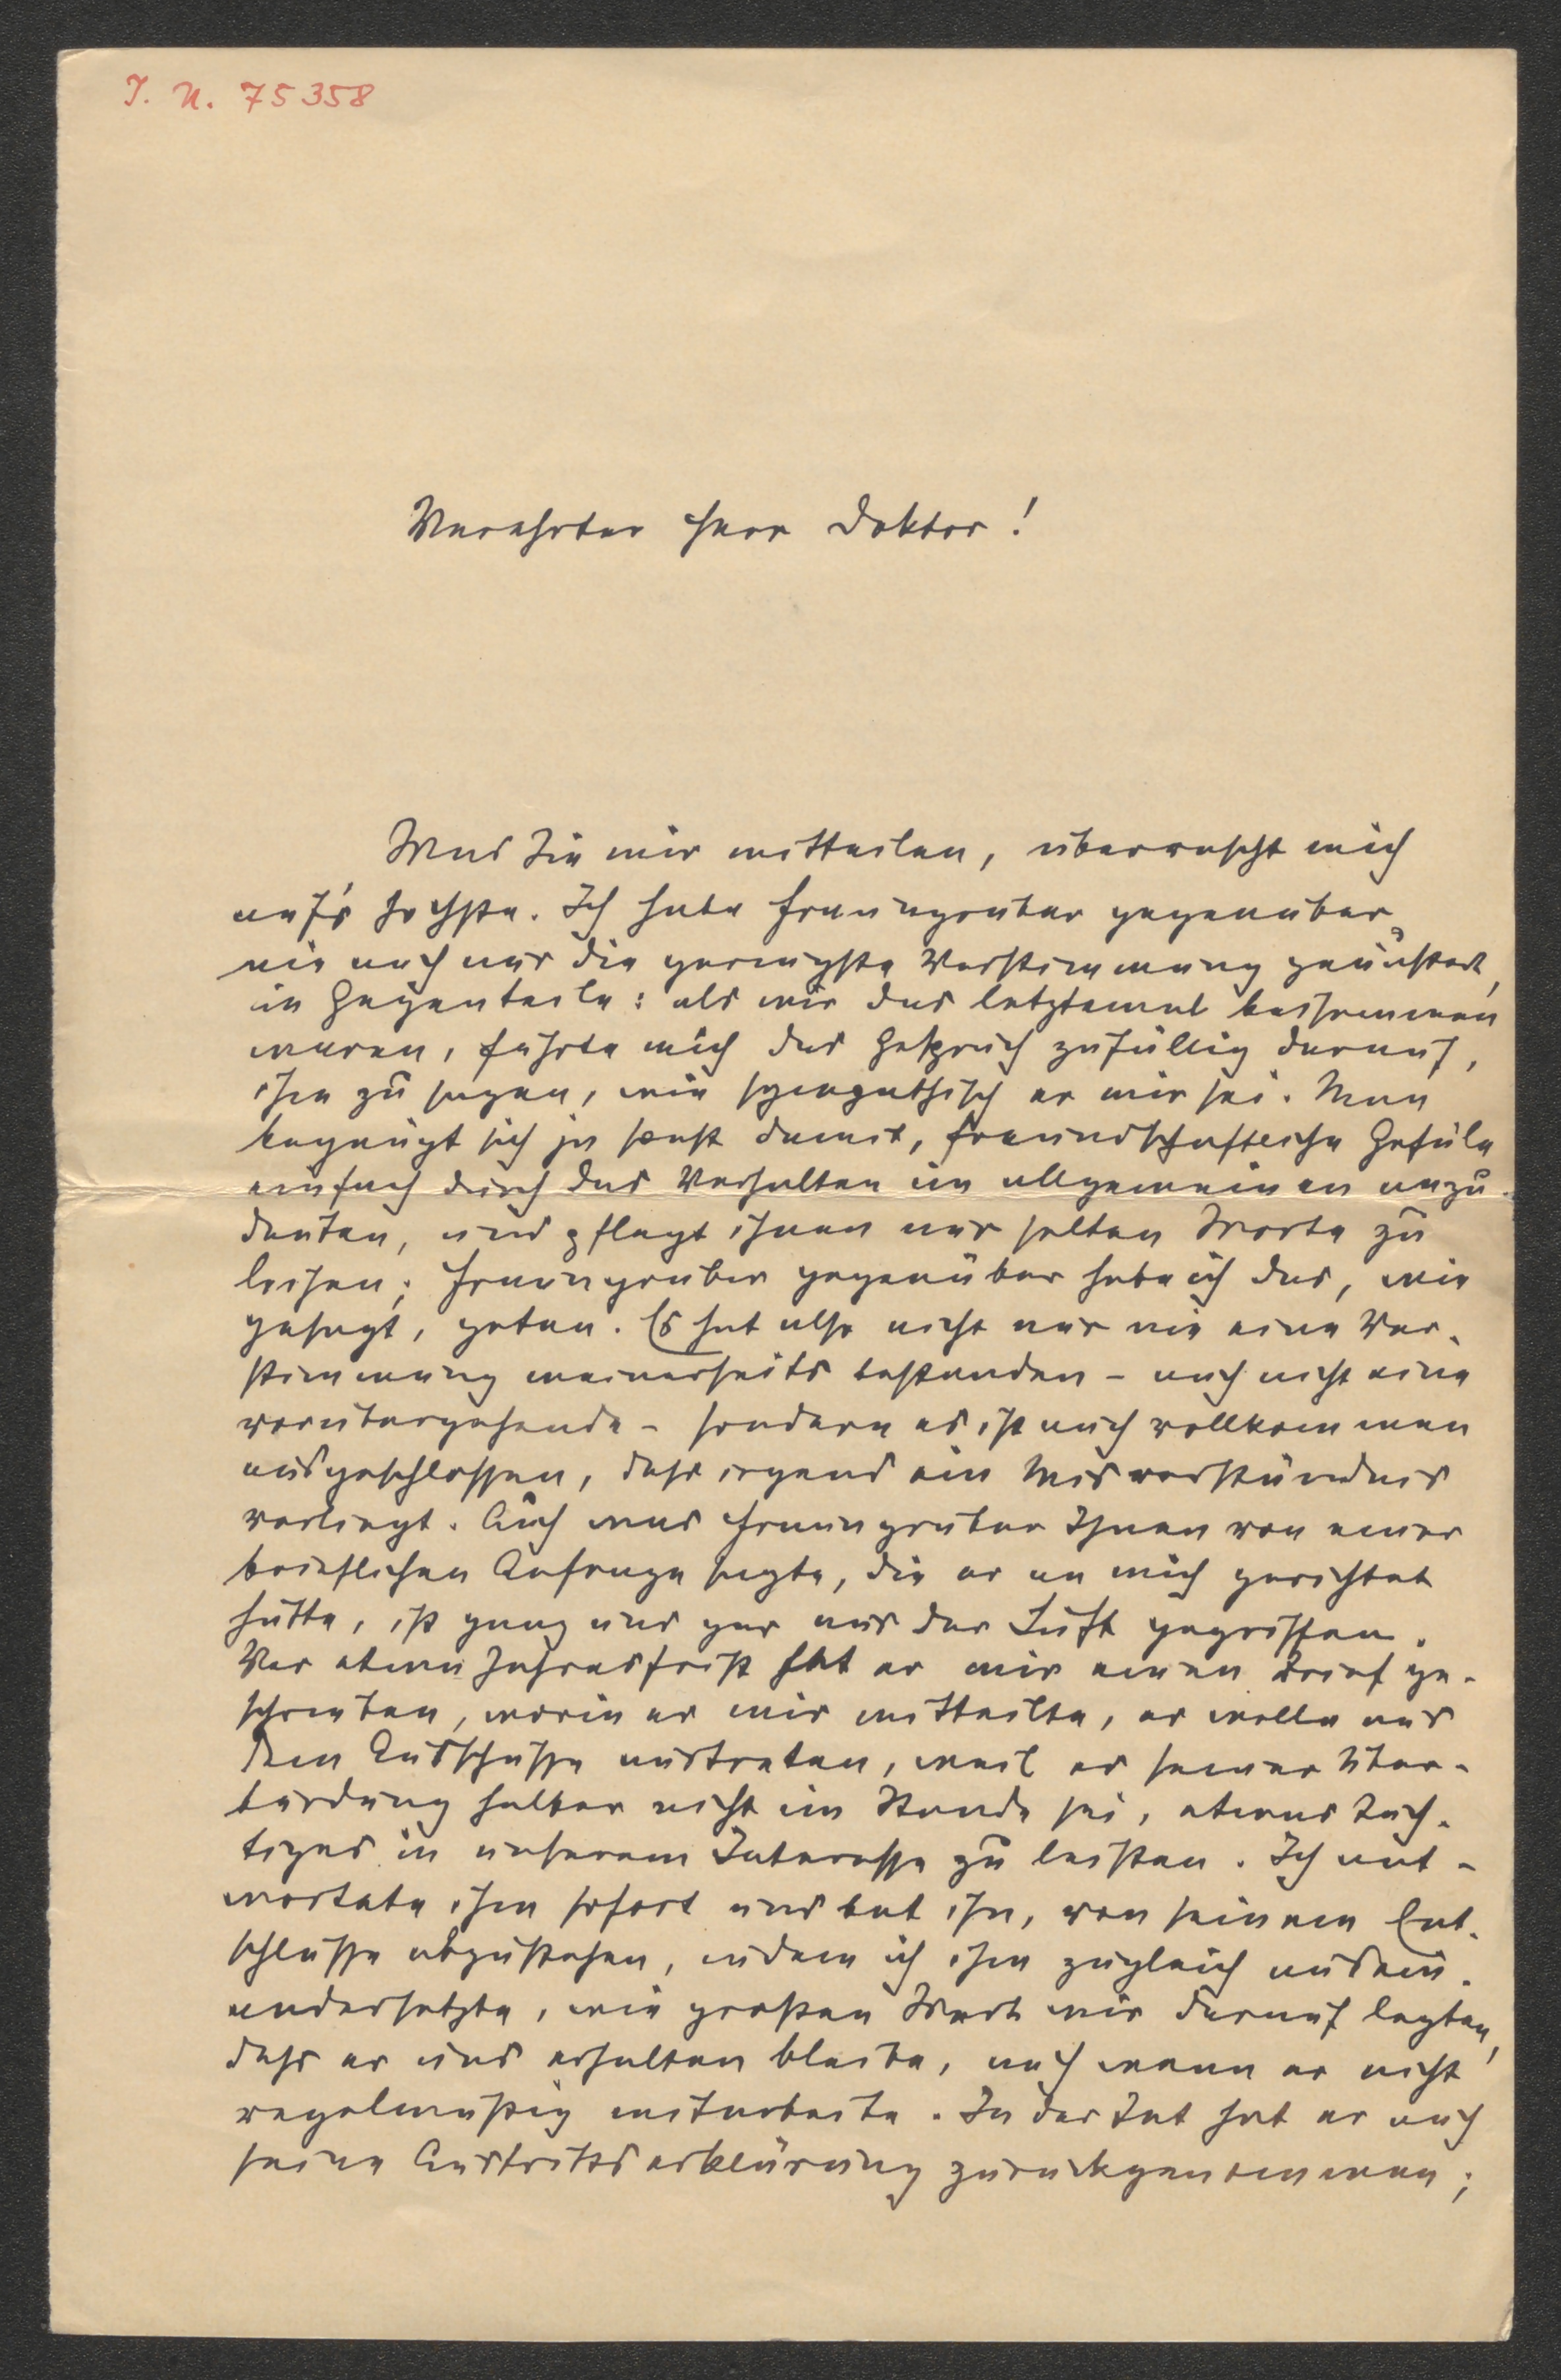 I. N. 75358
Verehrter Herr Doktor!
Was Sie mir mitteilen, überrascht mich
auf's höchste. Ich habe Fraungruber gegenüber
nie auch nur die geringste Verstimmung geäußert,
im Gegenteile: als wir das letztemal beisammen
waren, führte mich das Gespräch zufällig darauf,
ihm zu sagen, wie sympathisch er mir sei. Man
begnügt sich ja sonst damit, freundschaftliche Gefüle
einfach durch das Verhalten im allgemeinen anzu-
deuten, und pflegt ihnen nur selten Worte zu
leihen; Fraungruber gegenüber habe ich das, wie
gesagt, getan. Es hat also nicht nur nie eine Ver-
stimmung meinerseits bestanden - auch nicht eine
vorübergehende - sondern es ist auch vollkommen
ausgeschlossen, dass irgend ein Misverständnis
vorliegt. Auch was Fraungruber Ihnen von einer
brieflichen Anfrage sagte, die er an mich gerichtet
hätte, ist ganz und gar aus der Luft gegriffen.
Vor etwa Jahresfrist hat er mir einen Brief ge-
schrieben, worin er mir mitteilte, er wolle aus
dem Ausschusse austreten, weil er seiner Über-
bürdung halber nicht im Stande sei, etwas Tüch-
tiges in unserem Interesse zu leisten. Ich ant-
wortete ihm sofort und bat ihn, von seinem Ent-
schlusse abzustehen, indem ich ihm zugleich ausein-
andersetzte, wie großen Wert wir darauf legten,
dass er uns erhalten bleibe, auch wenn er nicht
regelmäßig mitarbeite. In der Tat hat er auch
seine Austrittserklärung zurückgenommen;